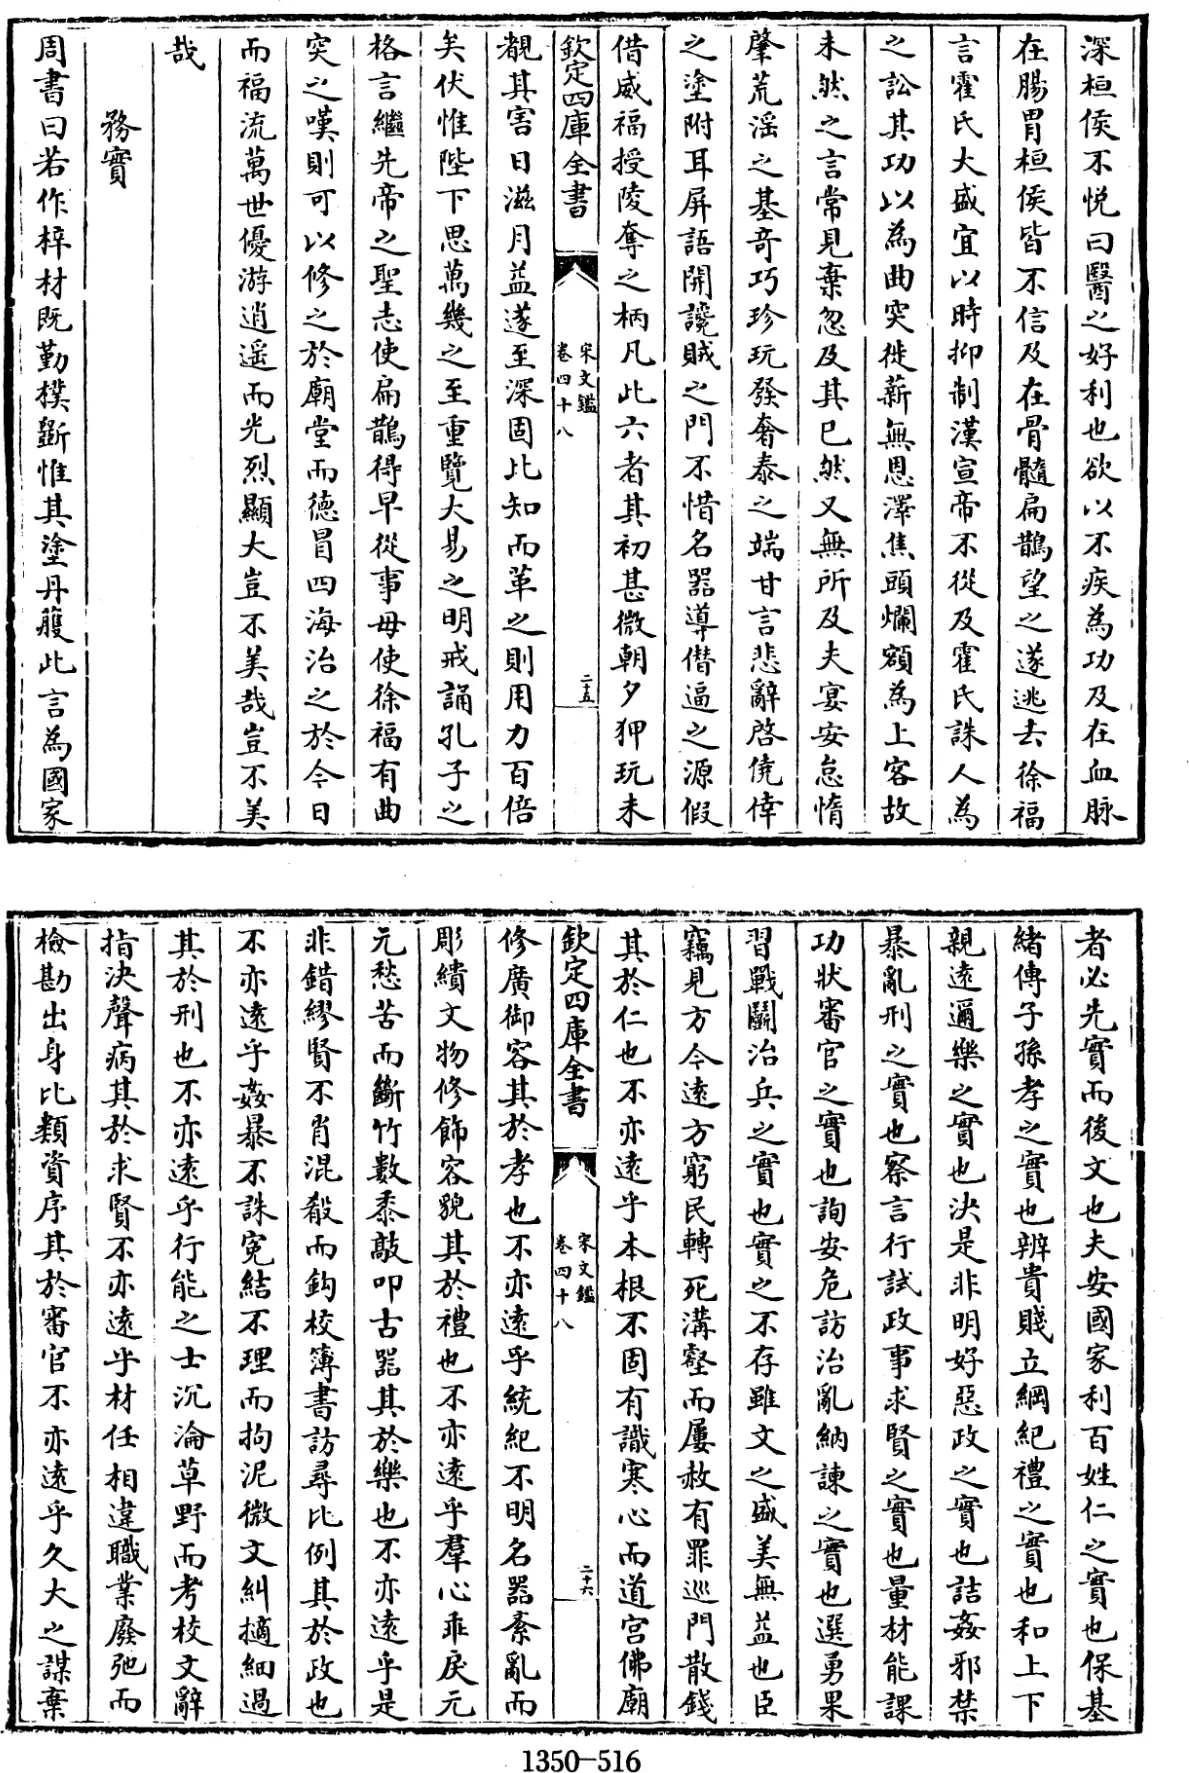 深桓侯不悅曰醫之好利也欲以不疾為功及在血脉
在腸胃桓侯皆不信及在骨髓扁鵲望之遂逃去徐福
言霍氏大盛宜以時抑制漢宣帝不從及霍氏誅人為
之訟其功以為曲突徙薪無恩澤焦頭爛額為上客故
未然之言常見棄忽及其已然又無所及夫宴安怠惰
肇荒淫之基奇巧珍玩發奢泰之端甘言悲辭啓僥倖
之塗附耳屏語開讒賊之門不惜名器導僭逼之源假
借威福授陵奪之柄凡此六者其初甚微朝夕狎玩未
欽定四庫全書
宋文鑑
卷四十八
二五
覩其害日滋月益遂至深固比知而革之則用力百倍
矣伏惟陛下思萬幾之至重覽大易之明戒誦孔子之
格言繼先帝之聖志使扁鵲得早從事毋使徐福有曲
突之嘆則可以修之於廟堂而德冒四海治之於今日
而福流萬世優游逍遥而光烈顯大豈不美哉豈不美
哉
務實
周書曰若作梓材既勤樸斵惟其塗丹雘此言為國家
者必先實而後文也夫安國家利百姓仁之實也保基
緒傳子孫孝之實也辨貴賤立綱紀禮之實也和上下
親遠邇樂之實也決是非明好惡政之實也詰姦邪禁
暴亂刑之實也察言行試政事求賢之實也量材能課
功狀審官之實也詢安危訪治亂納諫之實也選勇果
習戰鬭治兵之實也實之不存雖文之盛美無益也臣
竊見方今遠方窮民轉死溝壑而屢赦有罪巡門散錢
其於仁也不亦遠乎本根不固有識寒心而道宫佛廟
欽定四庫全書
宋文鑑
卷四十八
二十六
修廣御容其於孝也不亦遠乎統紀不明名器紊亂而
彫繢文物修飾容貌其於禮也不亦遠乎羣心乖戾元
元愁苦而斷竹數黍敲叩古器其於樂也不亦遠乎是
非錯繆賢不肖混殽而鈎校簿書訪尋比例其於政也
不亦遠乎姦暴不誅寃結不理而拘泥微文糾擿細過
其於刑也不亦遠乎行能之士沉淪草野而考校文辭
指決聲病其於求賢不亦遠乎材任相違職業廢弛而
檢勘出身比類資序其於審官不亦遠乎久大之謀棄
1350-516